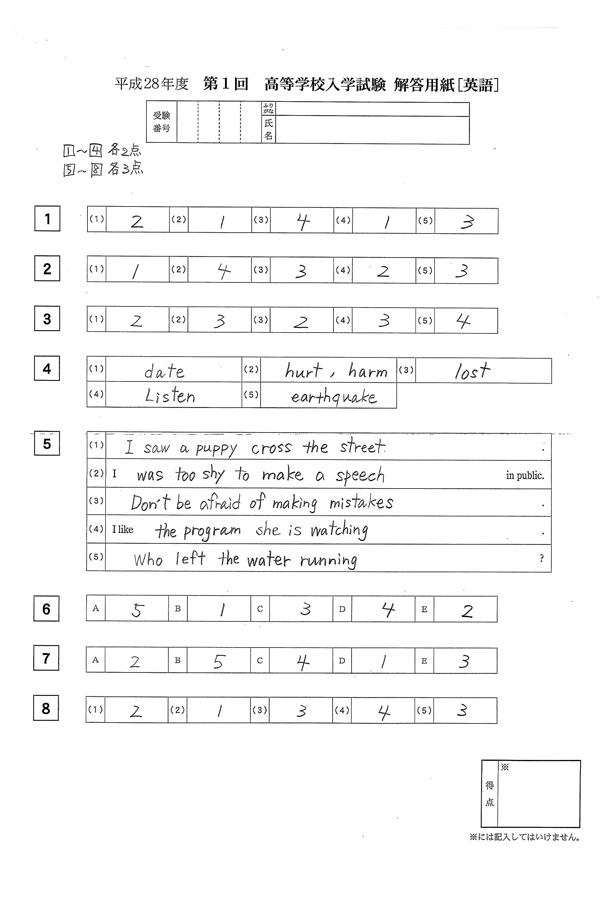 平成28年度 第1回 高等学校入学試験 解答用紙[英語]
受験番号 氏名
1～4 各2点
5～8 各3点
1 (1) 2 (2) 1 (3) 4 (4) 1 (5) 3
2 (1) 1 (2) 4 (3) 3 (4) 2 (5) 3
3 (1) 2 (2) 3 (3) 2 (4) 3 (5) 4
4 (1) date (2) hurt, harm (3) lost
(4) Listen (5) earthquake
5 (1) I saw a puppy cross the street.
(2) I was too shy to make a speech in public.
(3) Don't be afraid of making mistakes.
(4) I like the program she is watching.
(5) Who left the water running?
6 A 5 B 1 C 3 D 4 E 2
7 A 2 B 5 C 4 D 1 E 3
8 (1) 2 (2) 1 (3) 3 (4) 4 (5) 3
得点 ※
※には記入してはいけません。